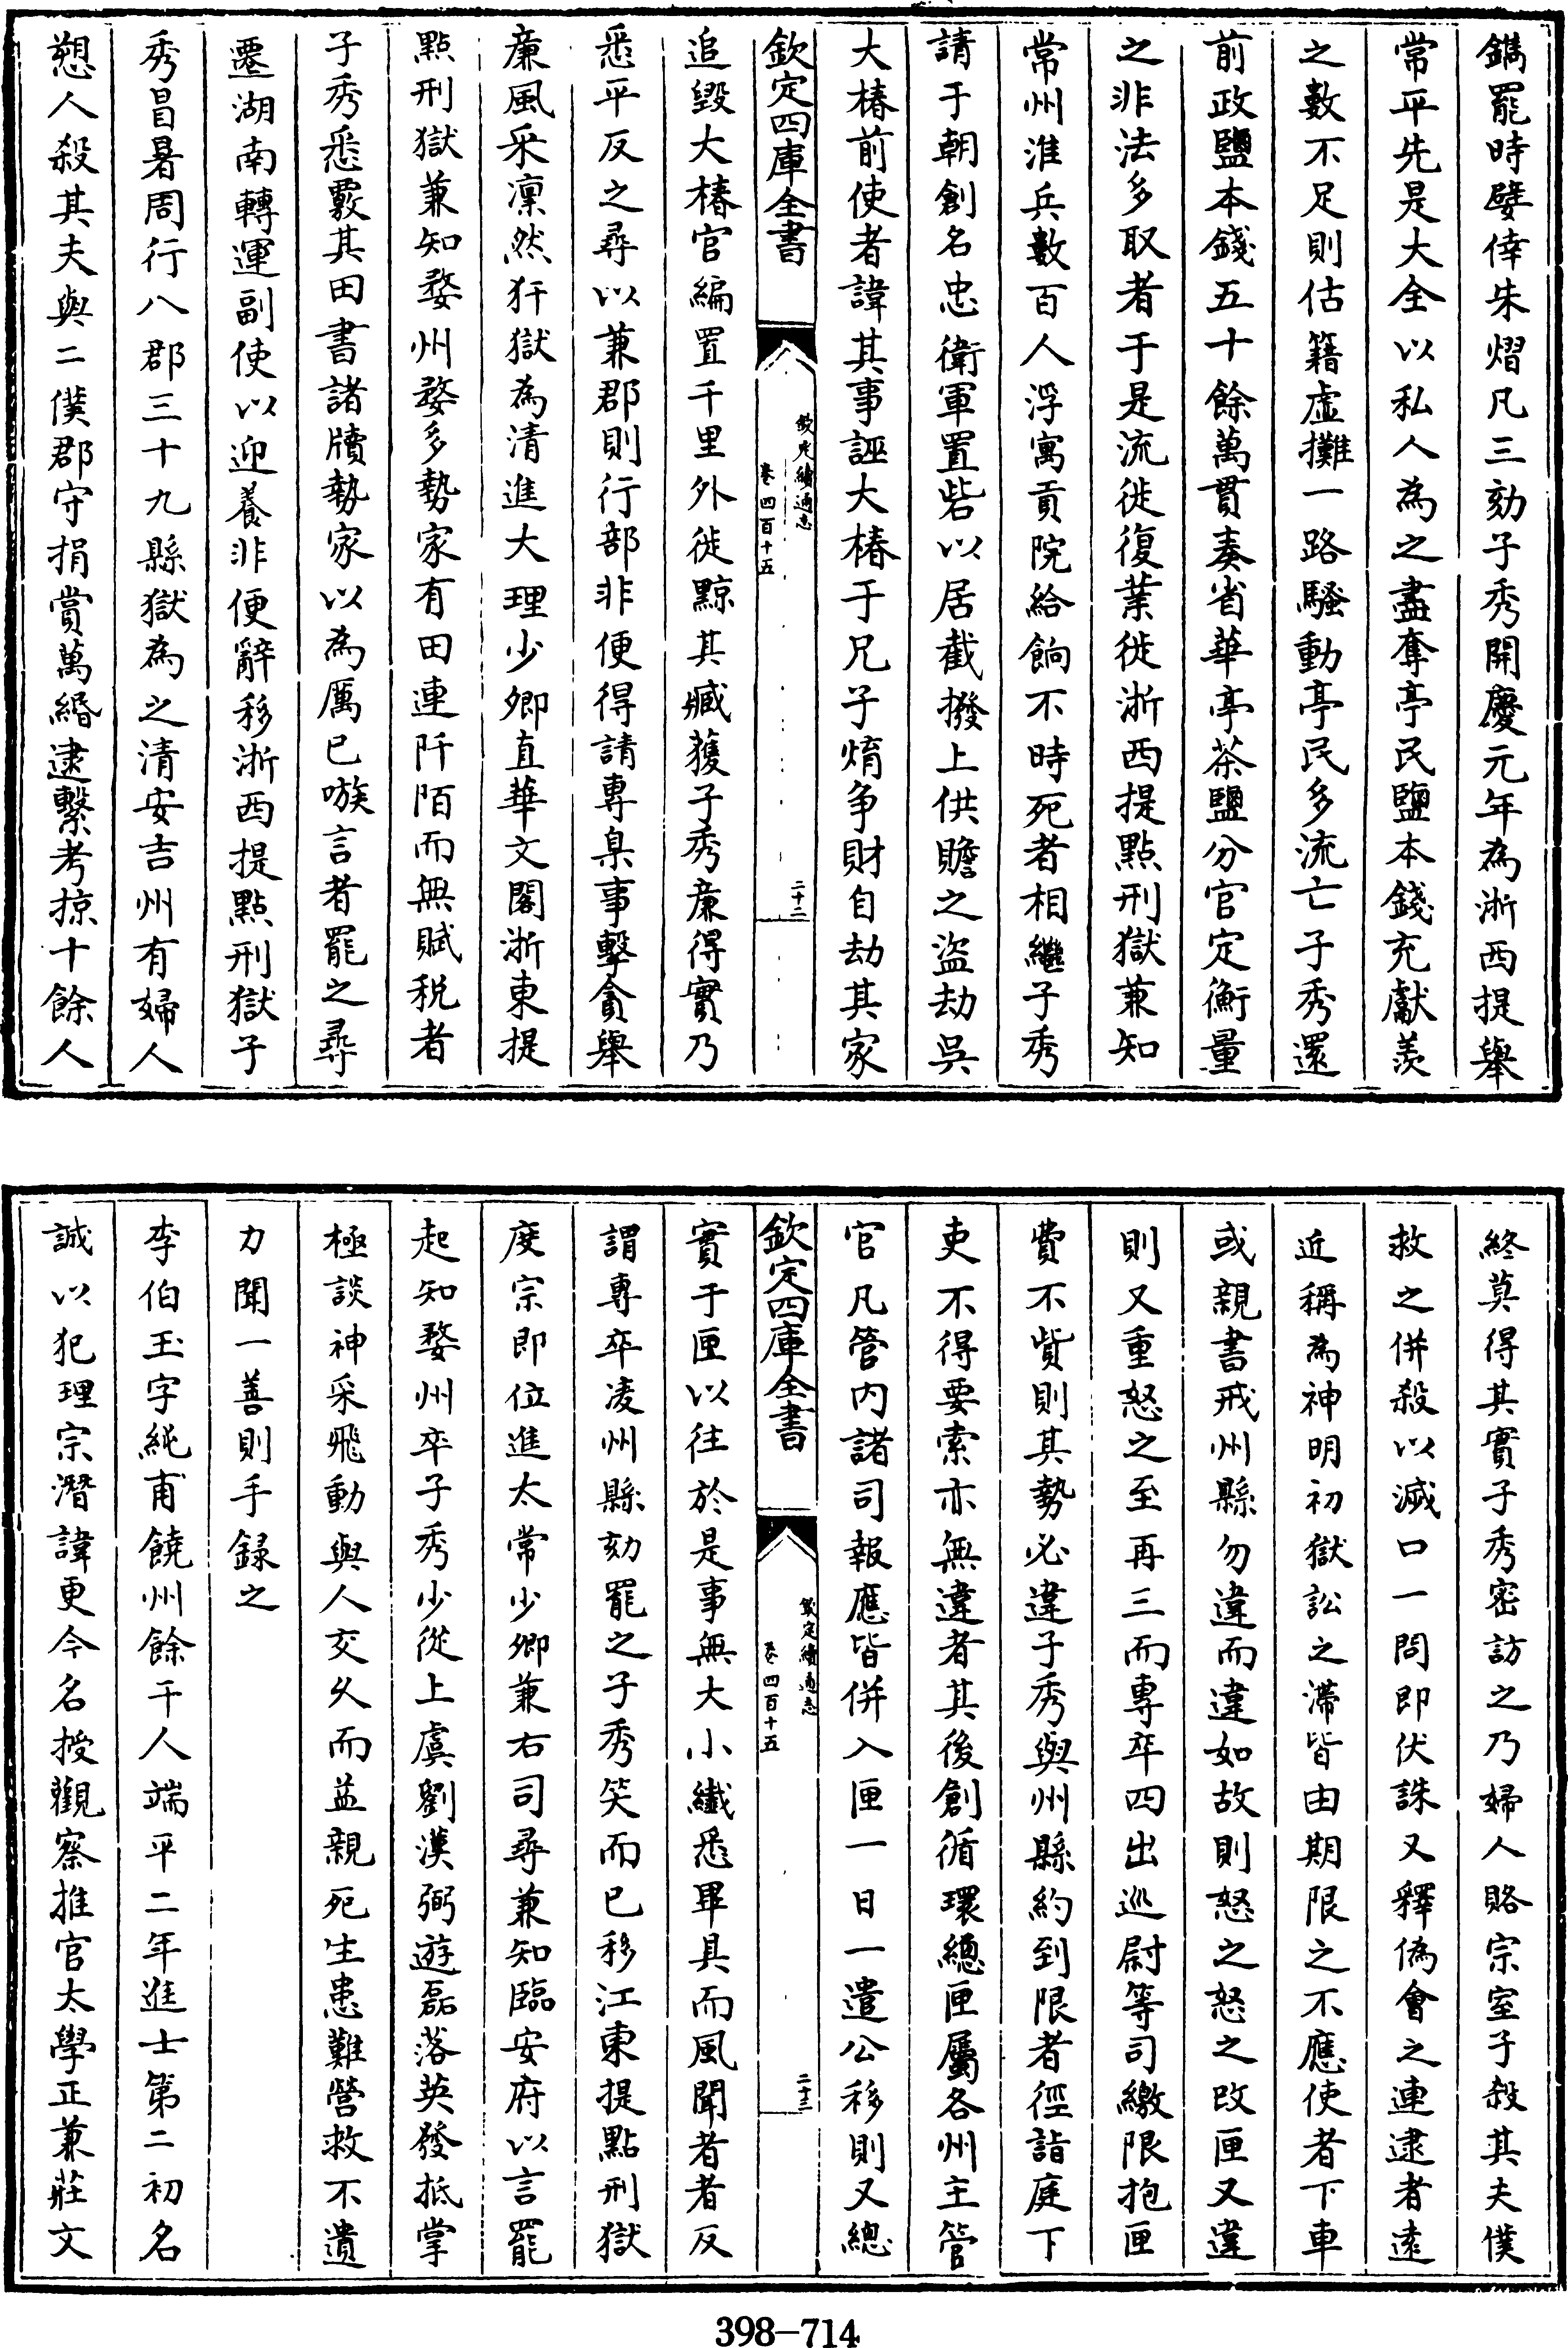 鐫罷時嬖倖朱熠凡三劾子秀開慶元年為浙西提舉
常平先是大全以私人為之盡奪亭民鹽本錢充獻羨
之數不足則估籍虛攤一路騷動亭民多流亡子秀還
前政鹽本錢五十餘萬貫奏省華亭茶鹽分官定衡量
之非法多取者于是流徙復業徙浙西提點刑獄兼知
常州淮兵數百人浮寓貢院給餉不時死者相繼子秀
請于朝創名忠衛軍置砦以居截撥上供贍之盜劫吳
大椿前使者諱其事誣大椿于兄子焴爭財自劫其家
欽定四庫全書
欽定續通志
卷四百十五
二十二
追毀大椿官編置千里外徙黥其臧獲子秀廉得實乃
悉平反之尋以兼郡則行部非便得請專臬事擊貪舉
廉風采凜然犴獄為清進大理少卿直華文閣浙東提
點刑獄兼知婺州婺多勢家有田連阡陌而無賦稅者
子秀悉覈其田書諸牘勢家以為厲已嗾言者罷之尋
遷湖南轉運副使以迎養非便辭移浙西提點刑獄子
秀冒暑周行八郡三十九縣獄為之清安吉州有婦人
愬人殺其夫與二僕郡守捐賞萬緡逮繫考掠十餘人
終莫得其實子秀密訪之乃婦人賂宗室子殺其夫僕
救之併殺以滅口一問即伏誅又釋偽會之連逮者遠
近稱為神明初獄訟之滯皆由期限之不應使者下車
或親書戒州縣勿違而違如故則怒之怒之改匣又違
則又重怒之至再三而專卒四出巡尉等司繳限抱匣
費不貲則其勢必違子秀與州縣約到限者徑詣庭下
吏不得要索亦無違者其後創循環總匣屬各州主管
官凡管內諸司報應皆併入匣一日一遣公移則又總
欽定四庫全書
欽定續通志
卷四百十五
二十三
實于匣以往於是事無大小纖悉畢具而風聞者者反
謂專卒凌州縣劾罷之子秀笑而已移江東提點刑獄
度宗即位進太常少卿兼右司尋兼知臨安府以言罷
起知婺州卒子秀少從上虞劉漢弼遊磊落英發抵掌
極談神采飛動與人交久而益親死生患難營救不遺
力聞一善則手録之
李伯玉字純甫饒州餘干人端平二年進士第二初名
誠以犯理宗潛諱更今名授觀察推官太學正兼莊文
398-714